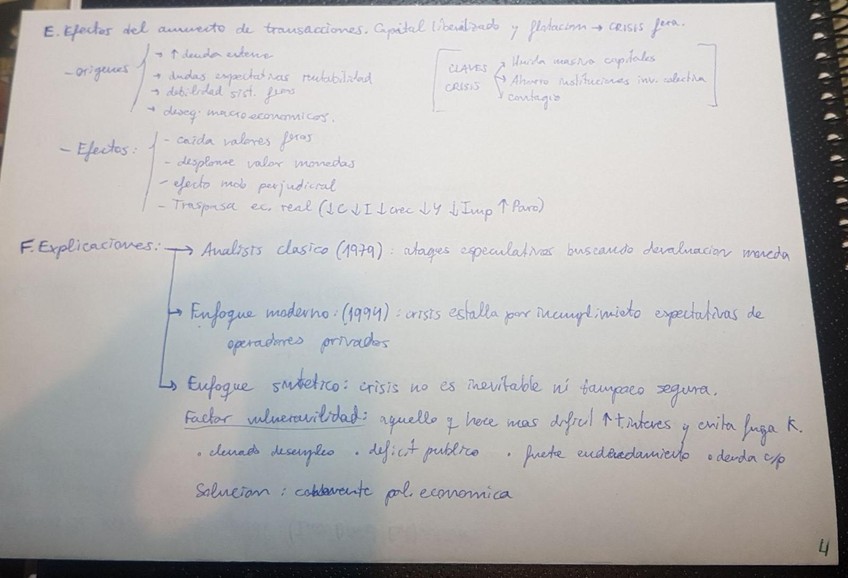 E. Efectos del aumento de transacciones. Capital liberalizado y flotacion → CRISIS fcra.
- origenes
→ ↑ deuda externa
→ dudas expectativas rentabilidad
→ debilidad sist. fcros
→ deseq. macroeconomicos.
CLAVES CRISIS
Huida masiva capitales
Ahorro instituciones inv. colectiva
contagio
- Efectos:
- caida valores fcros
- desplome valor monedas
- efecto mob perjudicial
- Traspasa ec. real (↓C ↓I ↓crec ↓Y ↓Imp ↑ Paro)
F. Explicaciones: → Analisis clasico (1979): ataques especulativos buscando devaluacion moneda
→ Enfoque moderno: (1994): crisis estalla por incumplimieto expectativas de
operadores privados
→ Enfoque sintetico: crisis no es inevitable ni tampoco segura.
Factor vulneravilidad: aquello q hace mas dificil ↑ t.interes y evita fuga K.
. elevado desempleo . deficit publico . fuerte endeudamiento . deuda c/p
Solucion: coherente pol. economica
4